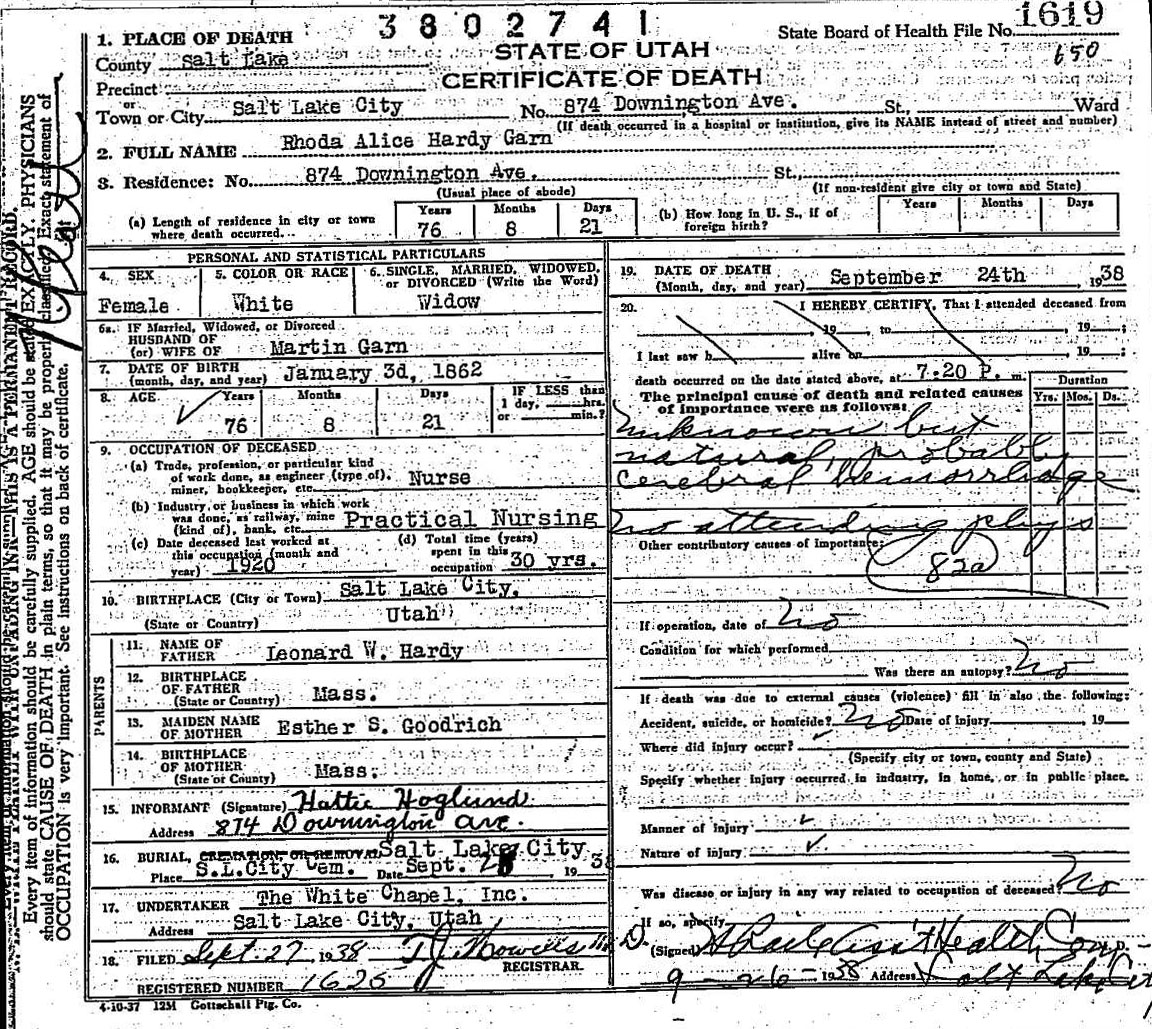 3802741
State Board of Health File No. 1619
650
STATE OF UTAH
CERTIFICATE OF DEATH
1. PLACE OF DEATH
County Salt Lake
Precinct
or
Town or City Salt Lake City No. 874 Downington Ave. St., Ward
(If death occurred in a hospital or institution, give its NAME instead of street and number)
2. FULL NAME Rhoda Alice Hardy Garn
3. Residence: No. 874 Downington Ave. St.,
(Usual place of abode) (If non-resident give city or town and State)
(a) Length of residence in city or town where death occurred. Years 76 Months 8 Days 21
(b) How long in U. S., if of foreign birth? Years Months Days
PERSONAL AND STATISTICAL PARTICULARS
4. SEX Female
5. COLOR OR RACE White
6. SINGLE, MARRIED, WIDOWED, or DIVORCED (Write the Word) Widow
6a. IF Married, Widowed, or Divorced
HUSBAND OF
(or) WIFE OF Martin Garn
7. DATE OF BIRTH
(month, day, and year) January 3d, 1862
8. AGE Years 76 Months 8 Days 21 IF LESS than 1 day, hrs. or min.?
9. OCCUPATION OF DECEASED
(a) Trade, profession, or particular kind
of work done, as engineer (type of),
miner, bookkeeper, etc. Nurse
(b) Industry or business in which work
was done, as railway, mine
(kind of), bank, etc. Practical Nursing
(c) Date deceased last worked at
this occupation (month and
year) 1920
(d) Total time (years)
spent in this
occupation 30 yrs.
10. BIRTHPLACE (City or Town) Salt Lake City,
(State or Country) Utah
PARENTS
11. NAME OF FATHER Leonard W. Hardy
12. BIRTHPLACE OF FATHER Mass.
(State or Country)
13. MAIDEN NAME OF MOTHER Esther S. Goodrich
14. BIRTHPLACE OF MOTHER Mass.
(State or County)
15. INFORMANT (Signature) Hattie Hoglund
Address 874 Downington Ave.
16. BURIAL, CREMATION, OR REMOVAL Salt Lake City
Place S.L.City Cem. Date Sept. 1938
17. UNDERTAKER The White Chapel, Inc.
Address Salt Lake City, Utah
18. FILED Sept. 27 1938 T J Howells
REGISTRAR.
REGISTERED NUMBER 1625
4-10-37 12M Gottschall Ptg. Co.
19. DATE OF DEATH
(Month, day, and year) September 24th, 1938
20. I HEREBY CERTIFY, That I attended deceased from
, 19 , to , 19 ;
I last saw h alive on , 19 ;
death occurred on the date stated above, at 7:20 P. m.
The principal cause of death and related causes
of importance were as follows:
Duration
Yrs. Mos. Ds.
Unknown but
natural, probably
Cerebral Hemorrhage
No attending phys
Other contributory causes of importance:
82a
If operation, date of No
Condition for which performed
Was there an autopsy? No
If death was due to external causes (violence) fill in also the following:
Accident, suicide, or homicide? No Date of injury 19
Where did injury occur?
(Specify city or town, county and State)
Specify whether injury occurred in industry, in home, or in public place.
Manner of injury
Nature of injury
Was disease or injury in any way related to occupation of deceased? No
If so, specify
(Signed) Health Comr
9-26-1938 Address Salt Lake City
Every item of information should be carefully supplied. AGE should be stated EXACTLY. PHYSICIANS
should state CAUSE OF DEATH in plain terms, so that it may be properly classified. Exact statement of
OCCUPATION is very important. See instructions on back of certificate.